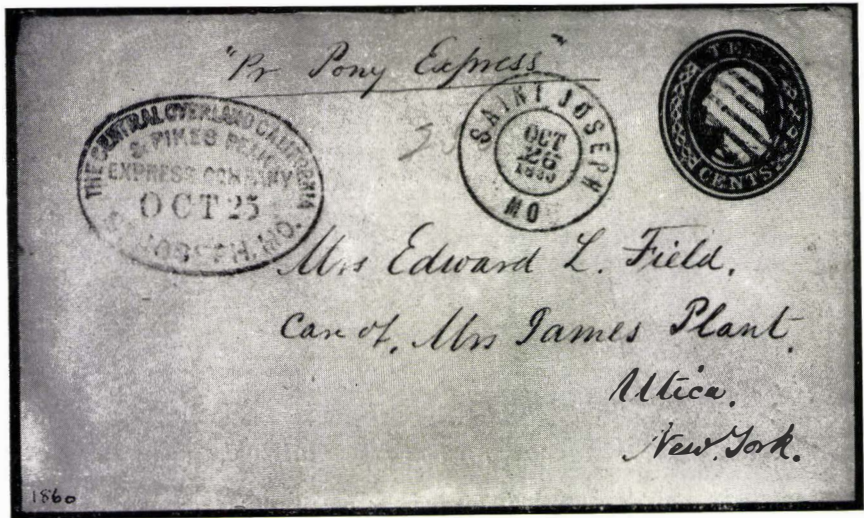 "Pr Pony Express"
THE CENTRAL OVERLAND CALIFORNIA
& PIKES PEAK
EXPRESS COMPANY
OCT 25
ST. JOSEPH, MO.
SAINT JOSEPH
OCT
26
1860
MO
TEN
CENTS
Mrs Edward L. Field,
Care of, Mrs James Plant.
Utica,
New York.
1860